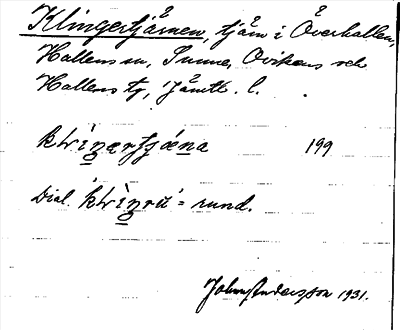 Klingertjärnen, tjärn i Överhallen,
Hallens sn, Sunne, Ovikens och
Hallens tg, Jämtl. l.
199
Dial. = rund.
John Andersson 1931.